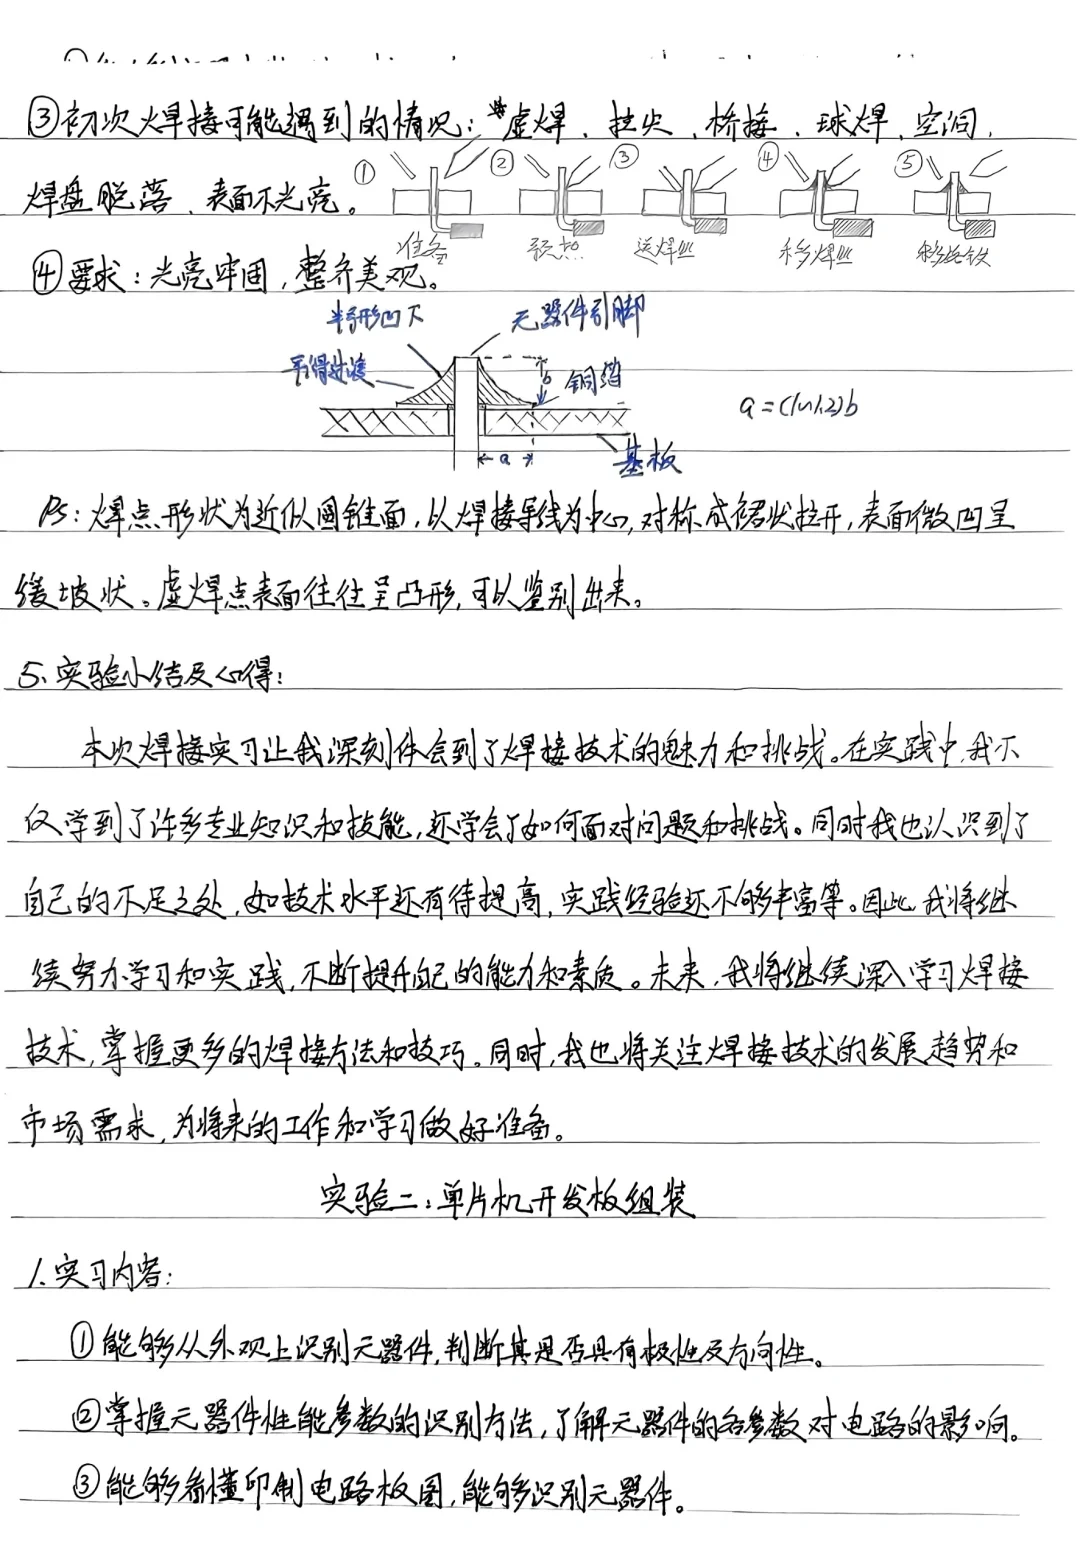 ③初次焊接可能遇到的情况：虚焊、拉尖、桥接、球焊、空洞、
焊盘脱落、表面不光亮。
① ② ③ ④ ⑤
准备 预热 送焊丝 移焊丝 移烙铁
④要求：光亮牢固，整齐美观。
半弓形凹下 元器件引脚
平滑过渡 b 铜箔
a=(1~1.2)b
a 基板
Ps：焊点形状为近似圆锥面，以焊接导线为中心，对称成裙状拉开，表面微凹呈
缓坡状。虚焊点表面往往呈凸形，可以鉴别出来。
5、实验小结及心得：
本次焊接实习让我深刻体会到了焊接技术的魅力和挑战。在实践中，我不
仅学到了许多专业知识和技能，还学会了如何面对问题和挑战。同时我也认识到了
自己的不足之处，如技术水平还有待提高，实践经验还不够丰富等。因此，我将继
续努力学习和实践，不断提升自己的能力和素质。未来，我将继续深入学习焊接
技术，掌握更多的焊接方法和技巧。同时，我也将关注焊接技术的发展趋势和
市场需求，为将来的工作和学习做好准备。
实验二：单片机开发板组装
1.实习内容：
①能够从外观上识别元器件，判断其是否具有极性及方向性。
②掌握元器件性能参数的识别方法，了解元器件的各参数对电路的影响。
③能够看懂印制电路板图，能够识别元器件。